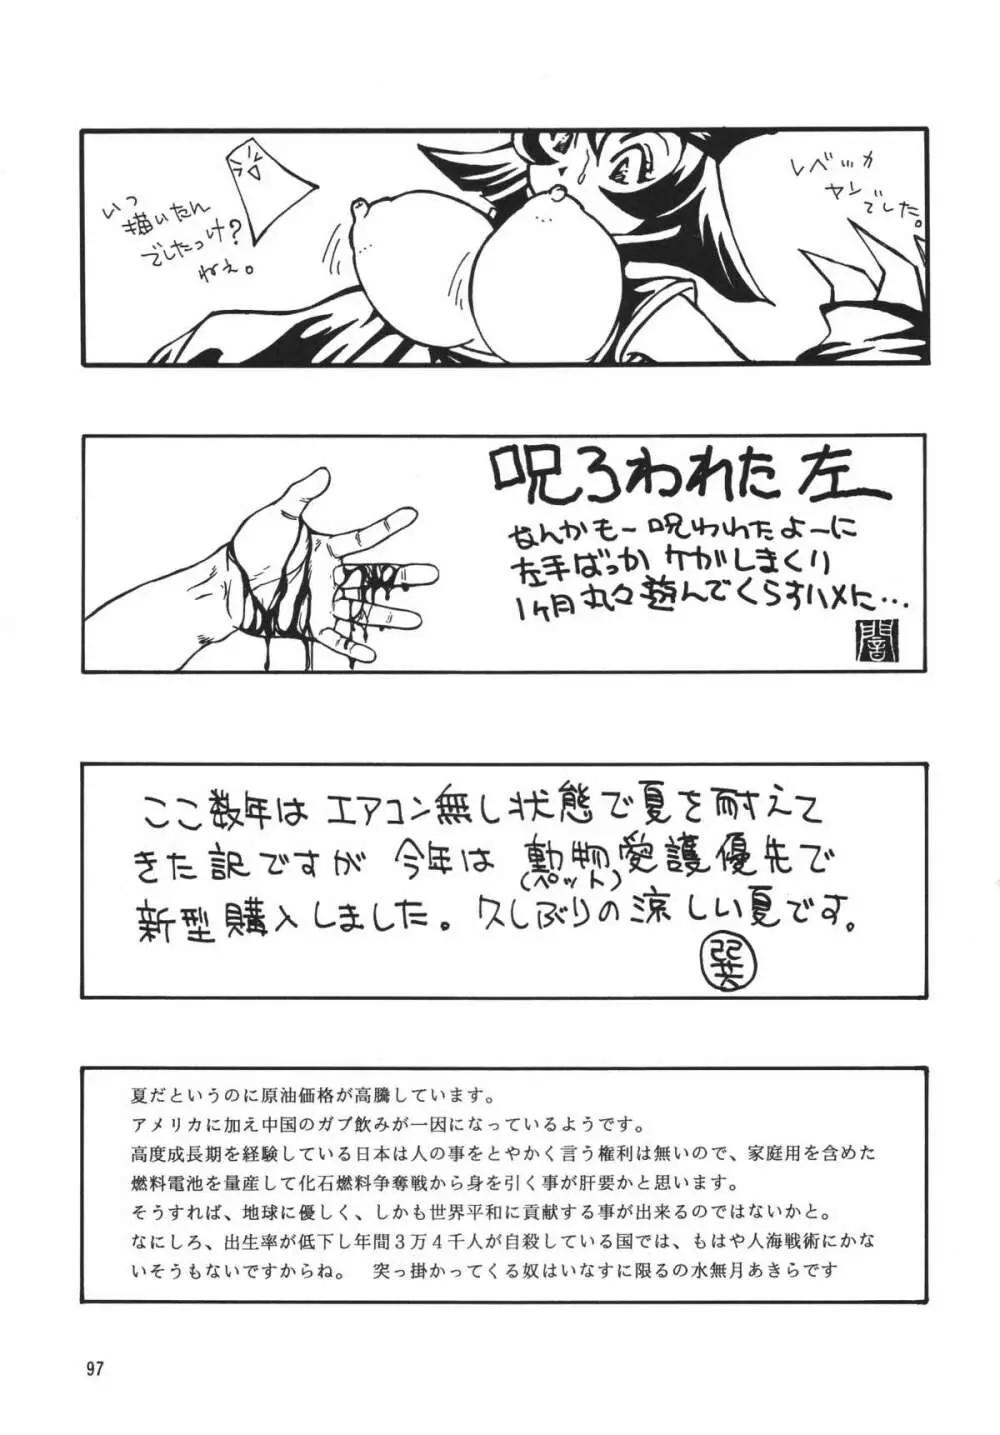 いつ
描いたん
でしたっけ?
ねぇ。
レベッカ
ヤンで
でした。
呪ろわれた左
なんかもー呪わわたよーに
左手ばっかケがしまくり
1ヶ月丸々遊んでくらすハメに…
闇
ここ数年はエアコン無し状態で夏を耐えて
きた訳ですが今年は動物愛護優先で
(ペット)
新型購入しました。久しぶりの涼しい夏です。
巽
夏だというのに原油価格が高騰しています。
アメリカに加え中国のガブ飲みが一因になっているようです。
高度成長期を経験している日本は人の事をとやかく言う権利は無いので、家庭用を含めた
燃料電池を量産して化石燃料争奪戦から身を引く事が肝要かと思います。
そうすれば、地球に優しく、しかも世界平和に貢献する事が出来るのではないかと。
なにしろ、出生率が低下し年間3万4千人が自殺している国では、もはや人海戦術にかな
いそうもないですからね。 突っ掛かってくる奴はいなすに限るの水無月あきらです
97